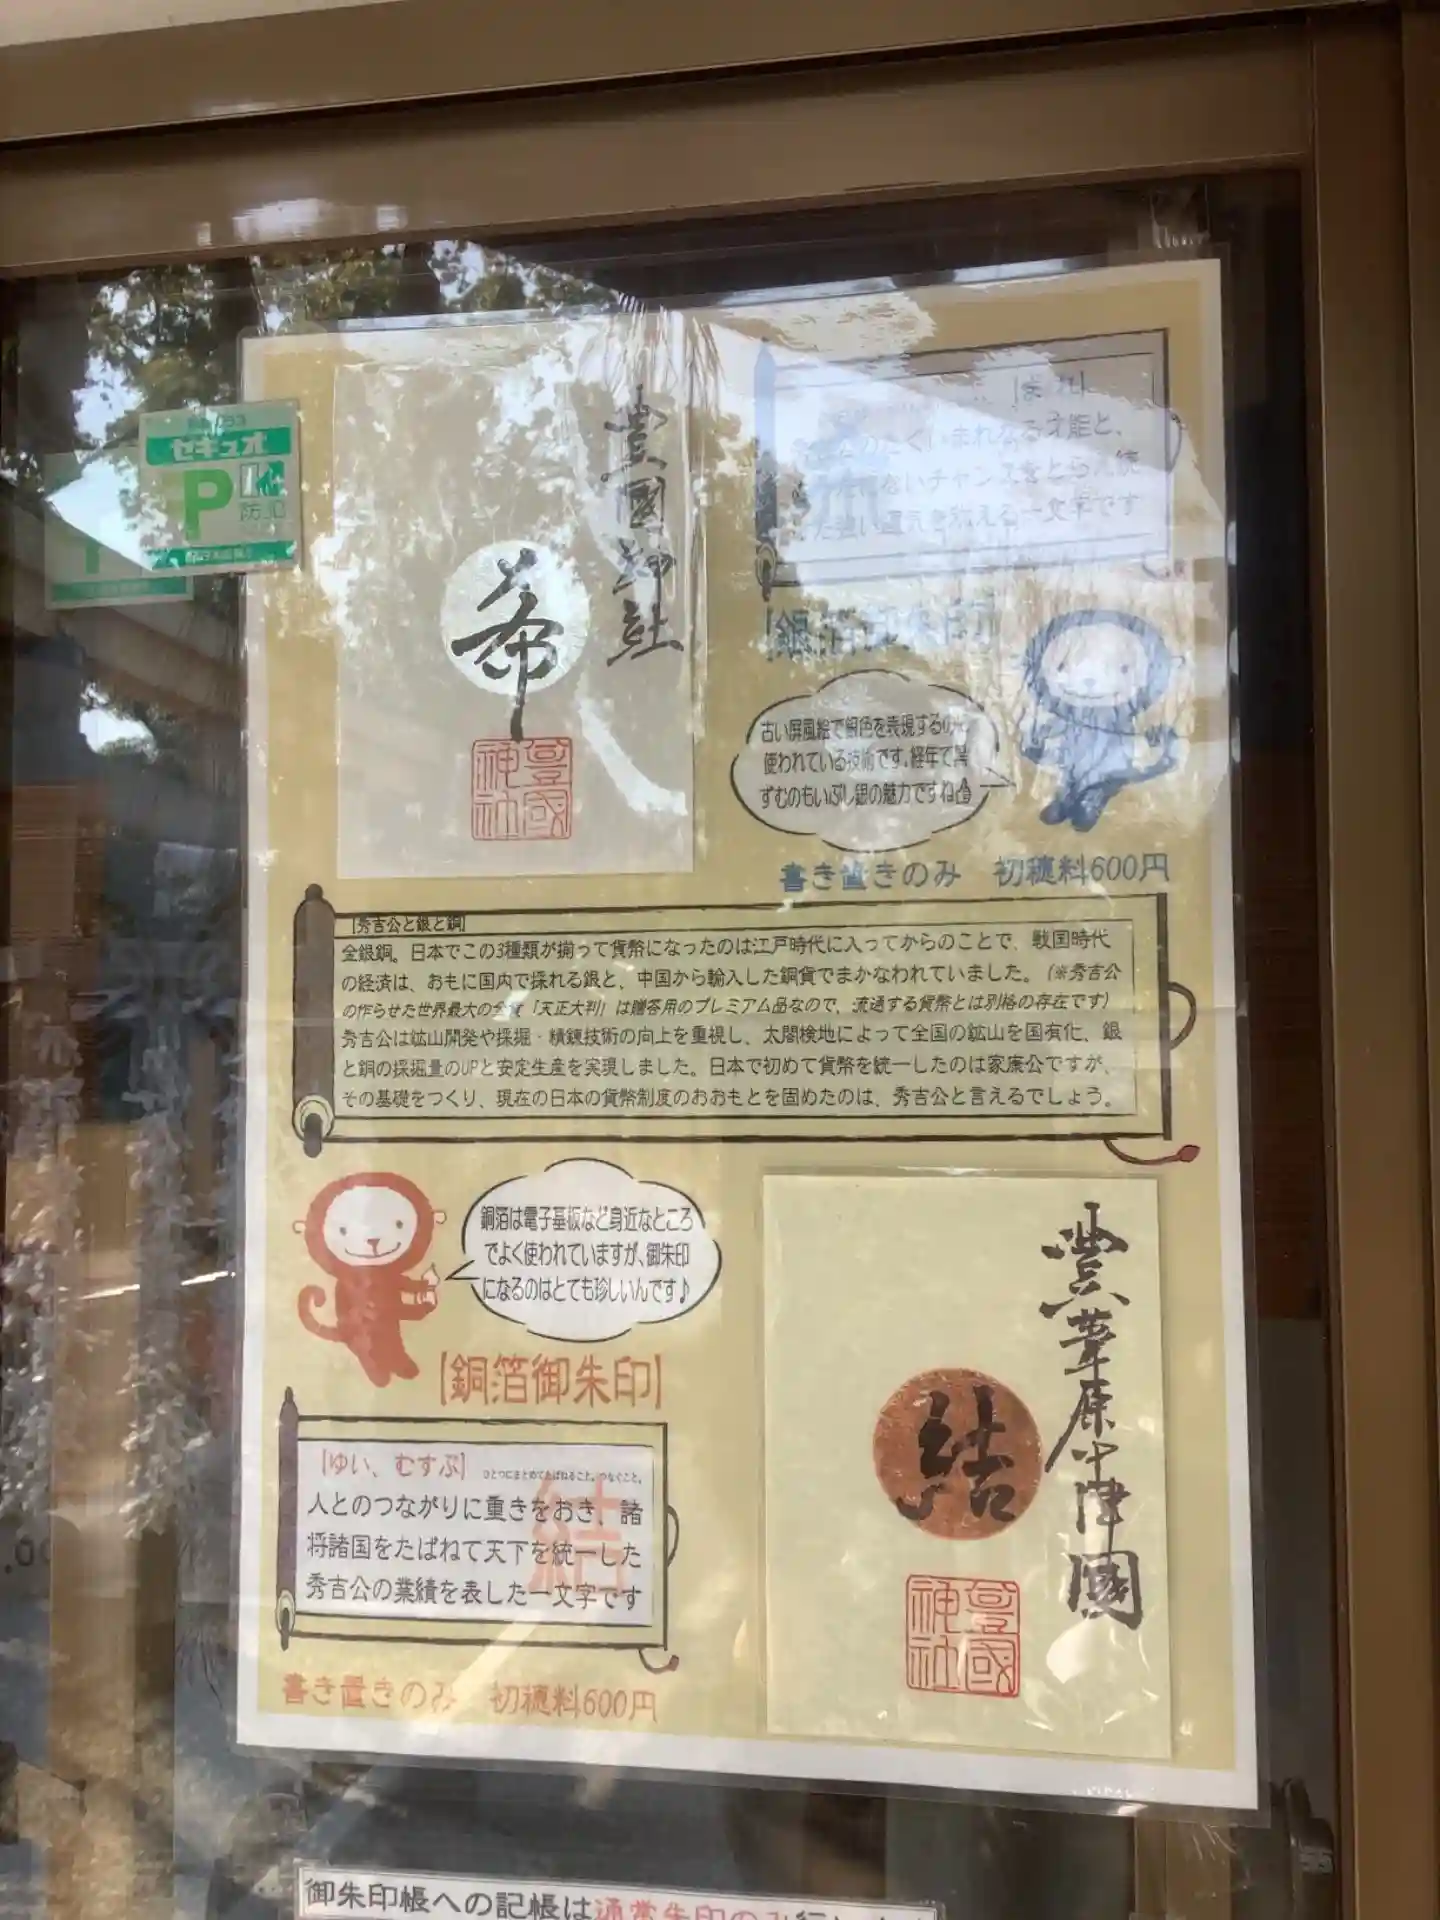 セキュオ
P
防犯
豊國神社
希
豊國
神社
【まれ】
たぐいまれなる才能と、
ないチャンスをとらえ続
強い運気を称える一文字です
【銀箔御朱印】
古い屏風絵で銀色を表現するのに
使われている技術です。経年で黒
ずむのもいぶし銀の魅力ですね
書き置きのみ 初穂料600円
【秀吉公と銀と銅】
金銀銅。日本でこの3種類が揃って貨幣になったのは江戸時代に入ってからのことで、戦国時代
の経済は、おもに国内で採れる銀と、中国から輸入した銅貨でまかなわれていました。(※秀吉公
の作らせた世界最大の金貨「天正大判」は贈答用のプレミアム品なので、流通する貨幣とは別格の存在です)
秀吉公は鉱山開発や採掘・精錬技術の向上を重視し、太閤検地によって全国の鉱山を国有化、銀
と銅の採掘量のUPと安定生産を実現しました。日本で初めて貨幣を統一したのは家康公ですが、
その基礎をつくり、現在の日本の貨幣制度のおおもとを固めたのは、秀吉公と言えるでしょう。
銅箔は電子基板など身近なところ
でよく使われていますが、御朱印
になるのはとても珍しいんです♪
【銅箔御朱印】
【ゆい、むすぶ】 ひとつにまとめてたばねること。つなぐこと。
結
人とのつながりに重きをおき、諸
将諸国をたばねて天下を統一した
秀吉公の業績を表した一文字です
書き置きのみ 初穂料600円
豊葦原中津國
結
豊國
神社
御朱印帳への記帳は通常朱印のみ